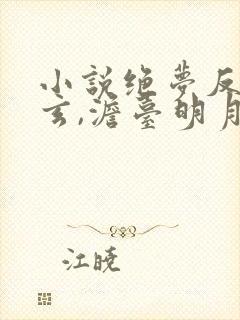 小説绝夢反
玄,澹臺明月
江晓